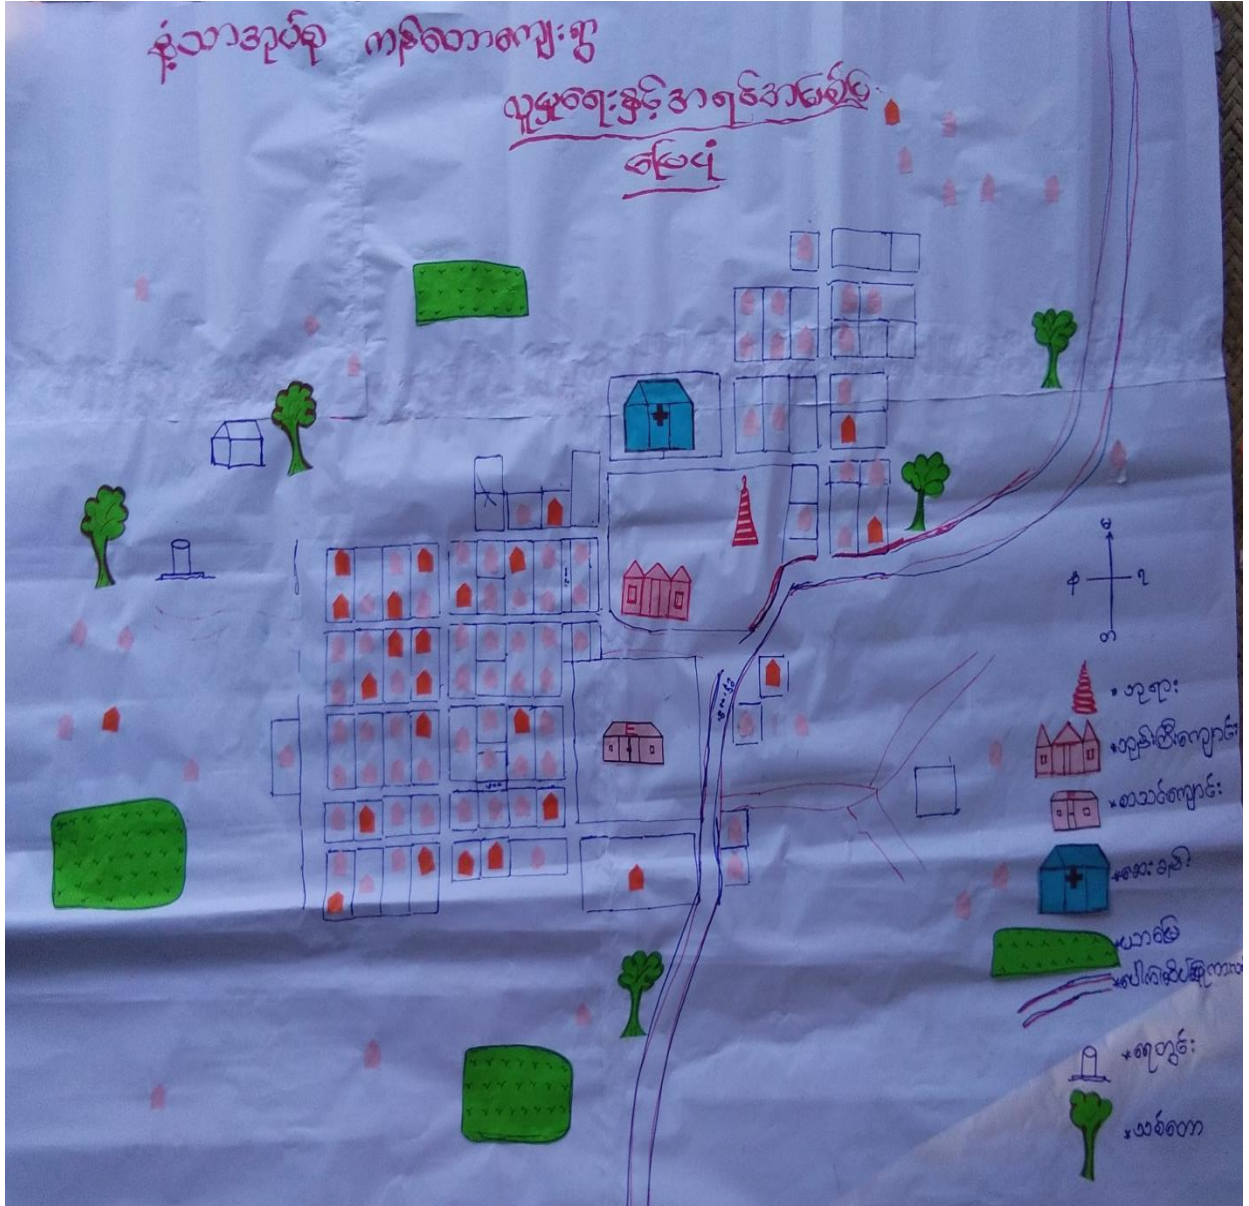 နွံ့သာအုပ်စု ကန်တောကျေးရွာ
လူမှုရေးနှင့်အရင်းအမြစ်ပြ
မြေပုံ
မ
န
ရ
တ
* ဘုရား
* ဘုန်းကြီးကျောင်း
* စာသင်ကျောင်း
* ဆေးခန်း
* ယာမြေ
* ရေတွင်း
* သစ်တော